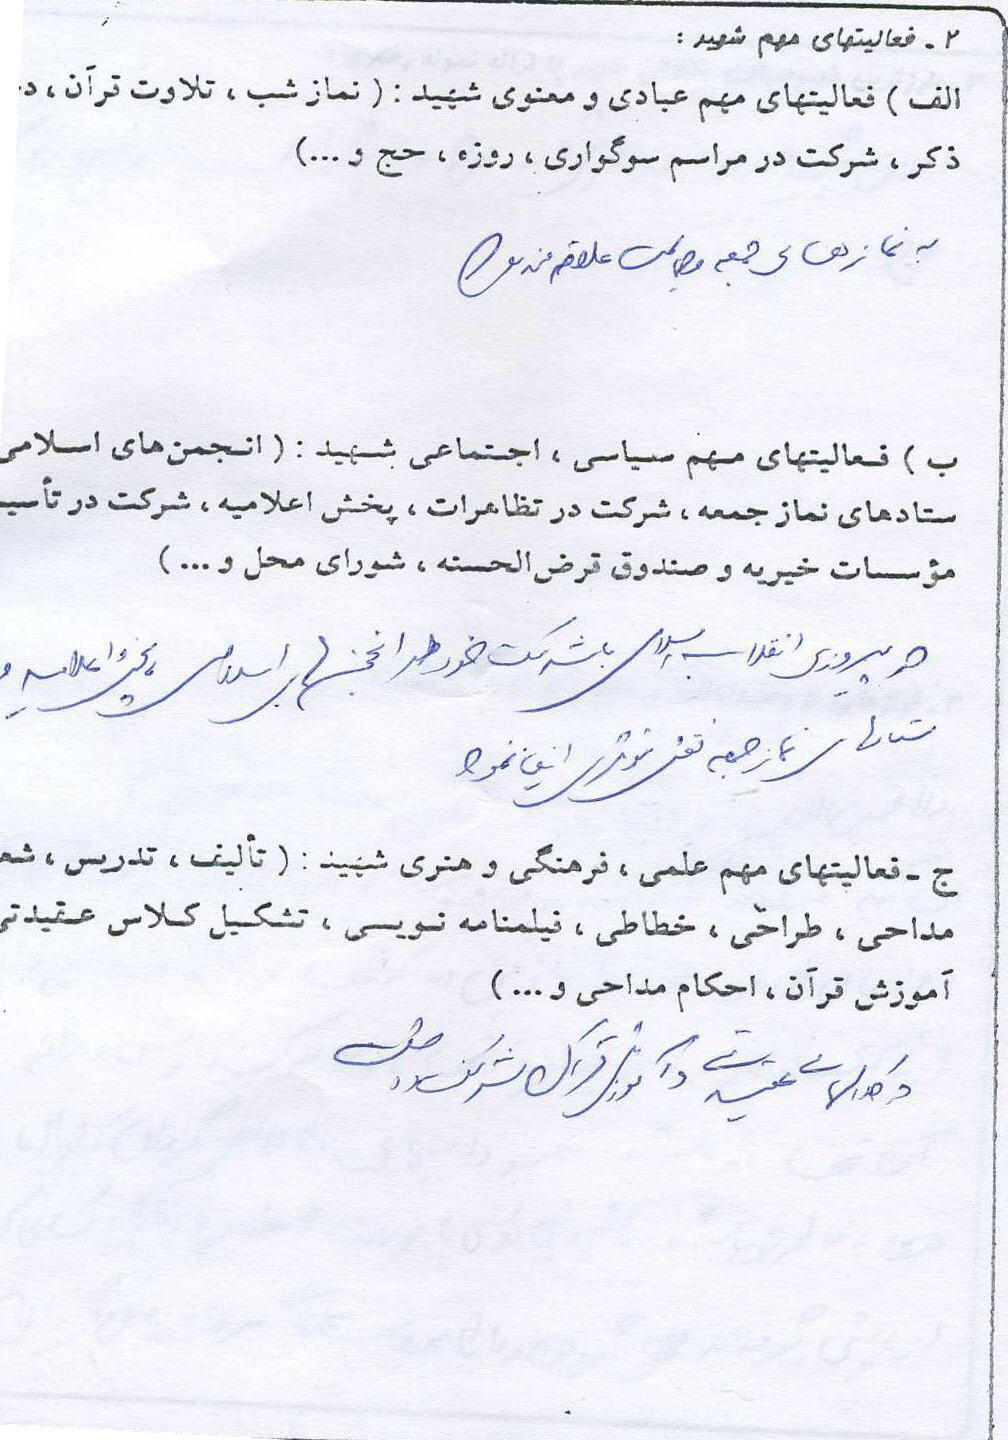 ۲ - فعالیتهای مهم شهید :
الف ) فعالیتهای مهم عبادی و معنوی شهید : ( نماز شب ، تلاوت قرآن ، د
ذکر ، شرکت در مراسم سوگواری ، روزه ، حج و ...)
به نمازهای جمعه و جماعت علاقمند بود
ب ) فعالیتهای مهم سیاسی ، اجتماعی شهید : ( انجمن‌های اسلامی
ستادهای نماز جمعه ، شرکت در تظاهرات ، پخش اعلامیه ، شرکت در تأسی
مؤسسات خیریه و صندوق قرض‌الحسنه ، شورای محل و ... )
در پیروزی انقلاب اسلامی با شرکت خود در انجمنهای اسلامی و پخش اعلامیه و
ستادهای نماز جمعه نقش مؤثری ایفا نمود
ج - فعالیتهای مهم علمی ، فرهنگی و هنری شهید : ( تألیف ، تدریس ، شع
مداحی ، طراحّی ، خطاطی ، فیلمنامه نویسی ، تشکیل کلاس عقیدتی
آموزش قرآن ، احکام مداحی و ... )
در کلاسهای عقیدتی و آموزش قرآن شرکت